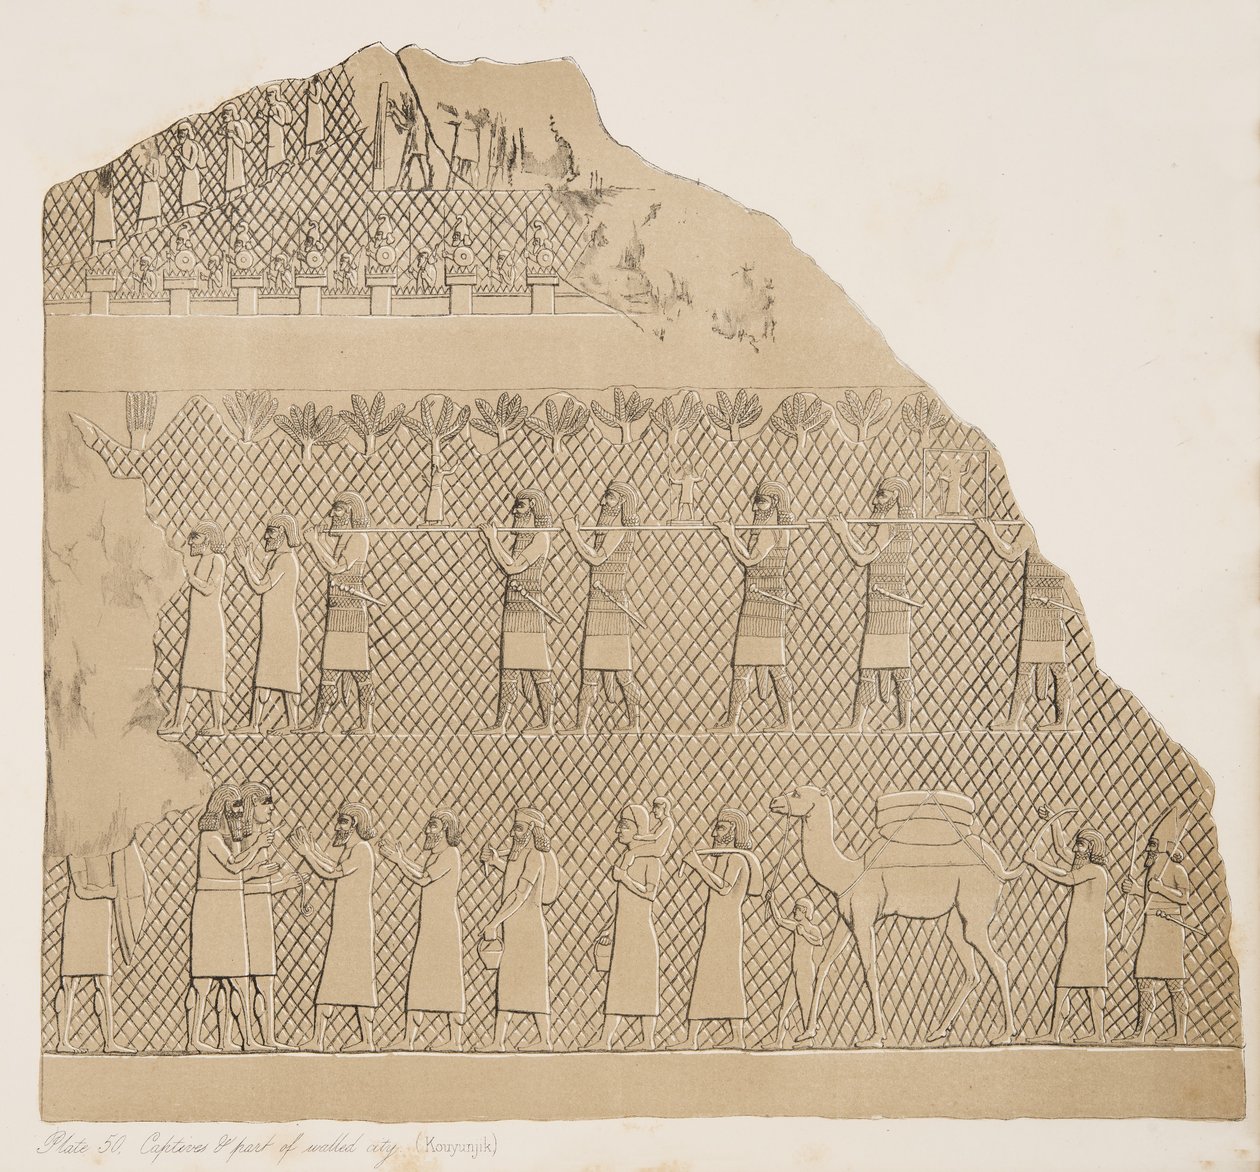 Plate 50. Captives & part of walled city. (Kouyunjik)